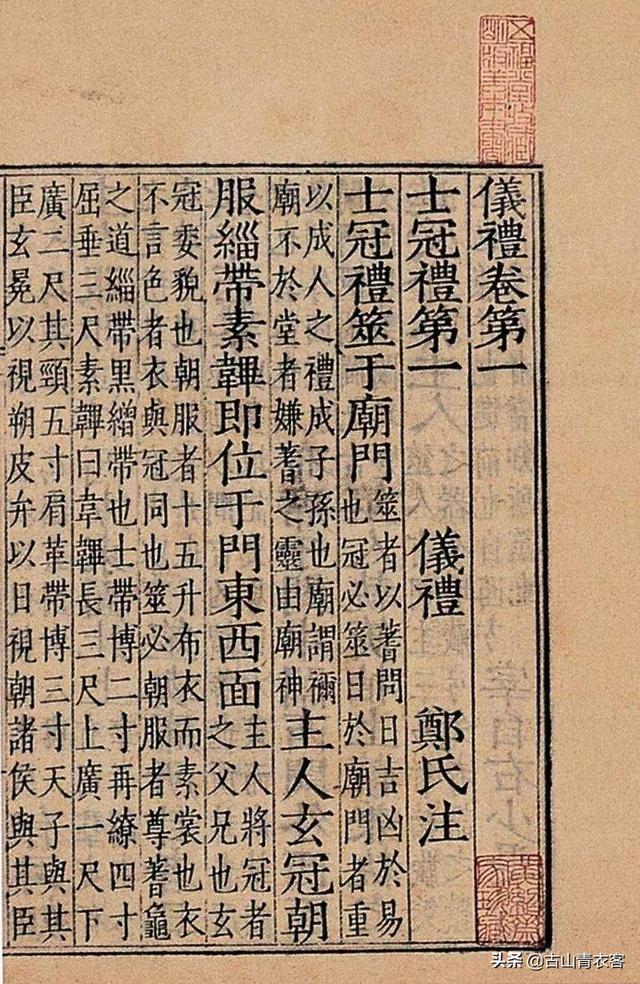 儀禮卷第一
士冠禮第一 儀禮 鄭氏注
士冠禮筮于廟門
筮者以蓍問日吉凶於易
也冠必筮日於廟門者重
以成人之禮成子孫也廟謂禰
廟不於堂者嫌蓍之靈由廟神
主人玄冠朝
服緇帶素韠即位于門東西面
主人將冠者
之父兄也玄
冠委貌也朝服者十五升布衣而素裳也衣
不言色者衣與冠同也筮必朝服者尊蓍龜
之道緇帶黑繒帶也士帶博二寸再繚四寸
屈垂三尺素韠白韋韠長三尺上廣一尺下
廣二尺其頸五寸肩革帶博三寸天子與其
臣玄冕以視朔皮弁以日視朝諸侯與其臣
头条 @古山青衣客